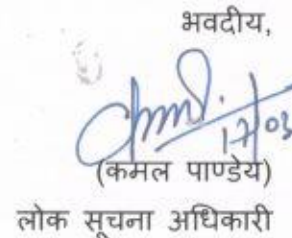 भवदीय,
17/03
(कमल पाण्डेय)
लोक सूचना अधिकारी